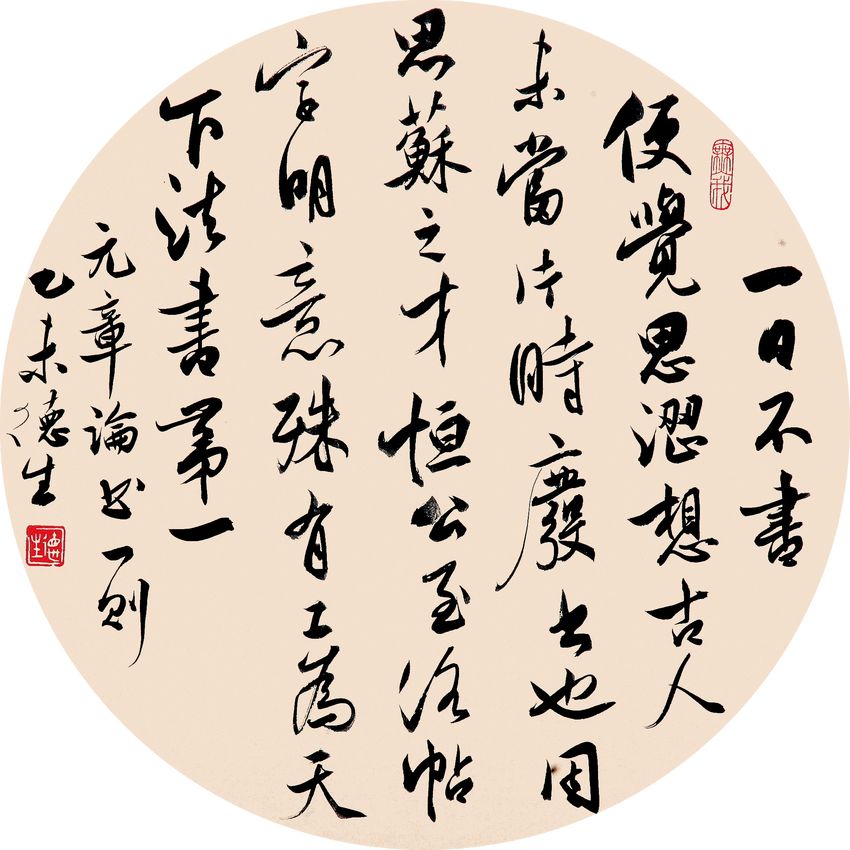 一日不書
便覺思澀想古人
未當片時廢书也用
思蘇之才恒公至洛帖
字明意殊有工為天
下法書第一
元章論书一則
乙未德生
德生